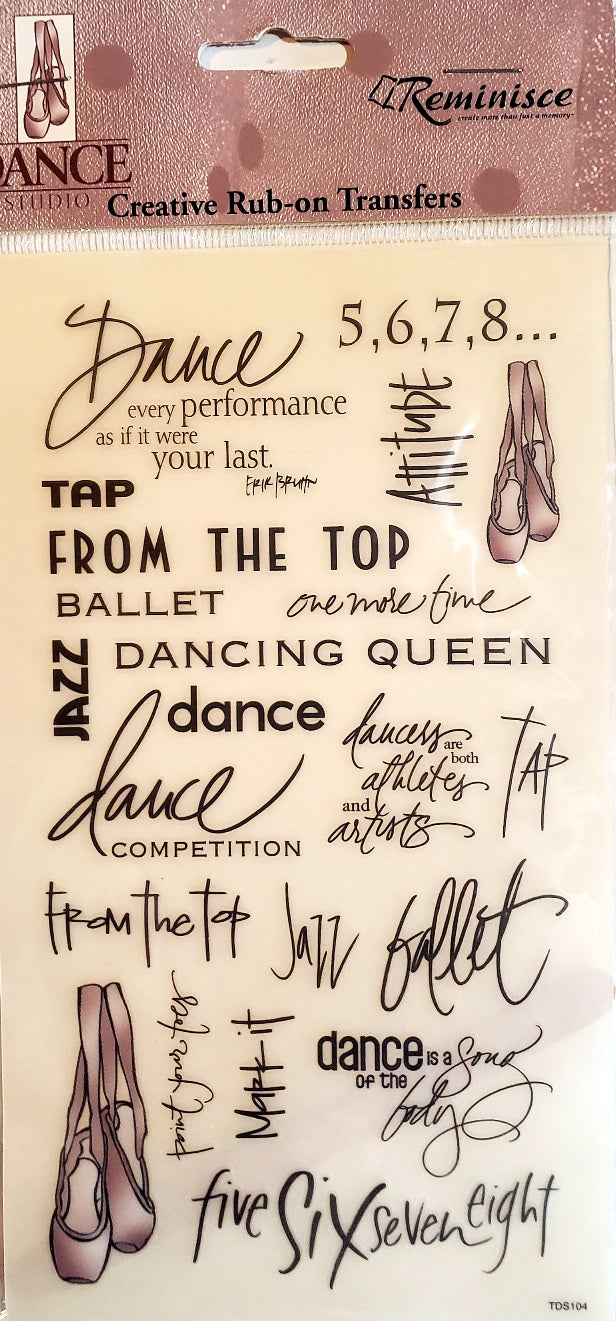 Reminisce
create more than just a memory™
DANCE
STUDIO
Creative Rub-on Transfers
Dance
every performance
as if it were
your last.
Erik Bruhn
5,6,7,8...
Attitude
TAP
FROM THE TOP
BALLET
one more time
JAZZ
DANCING QUEEN
dance
dance
COMPETITION
dancers are
both
athletes
and
artists
TAP
From the Top
Jazz
ballet
point your toes
Mark it
dance is a song
of the
body
five six seven eight
TDS104